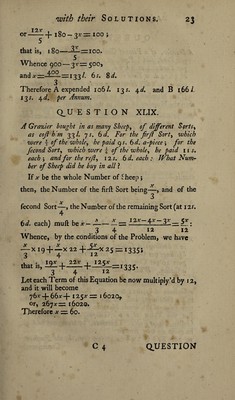 with their SOLUTIONS. 23
or 12v/5 + 180 — 3v = 100 ;
that is, 180 — 3v/5 = 100.
Whence 900 — 3v = 500,
and v = 400/3 = 133l. 6s. 8d.
Therefore A expended 106l. 13s. 4d. and B 166l
13s. 4d. per Annum.
QUESTION XLIX.
A Grasier bought in as many Sheep, of different Sorts,
as cost him 33l. 7s. 6d. For the first Sort, which
were ⅓ of the whole, he paid 9s. 6d. a-piece; for the
second Sort, which were ¼ of the whole, he paid 11s.
each; and for the rest, 12s. 6d. each: What Num-
ber of Sheep did he buy in all?
If x be the whole Number of Sheep;
then, the Number of the first Sort being x/3, and of the
second Sort x/4, the Number of the remaining Sort (at 12s.
6d. each) must be x — x/3 — x/4 = 12x—4x—3x/12 = 5x/12.
Whence, by the conditions of the Problem, we have
x/3 × 19 + x/4 × 22 + 5x/12 × 25 = 1335;
that is, 19x/3 + 22x/4 + 125x/12 = 1335.
Let each Term of this Equation be now multiply'd by 12,
and it will become
76x + 66x + 125x = 16020,
or, 267x = 16020.
Therefore x = 60.
C 4 QUESTION